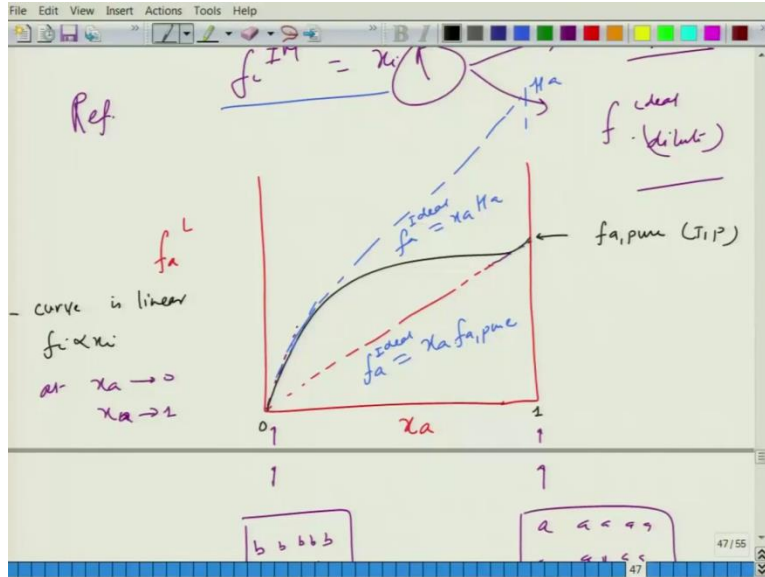 File Edit View Insert Actions Tools Help
B I
fi^IM = xi
Ref.
Ha
f ideal (dilute)
fa^L
fa^Ideal = xa Ha
fa,pure (T,P)
- curve is linear
fi ∝ xi
at xa → 0
xa → 1
fa^Ideal = xa fa,pure
0
xa
1
b b b b b
a a a a a
a a a a
47/55
47